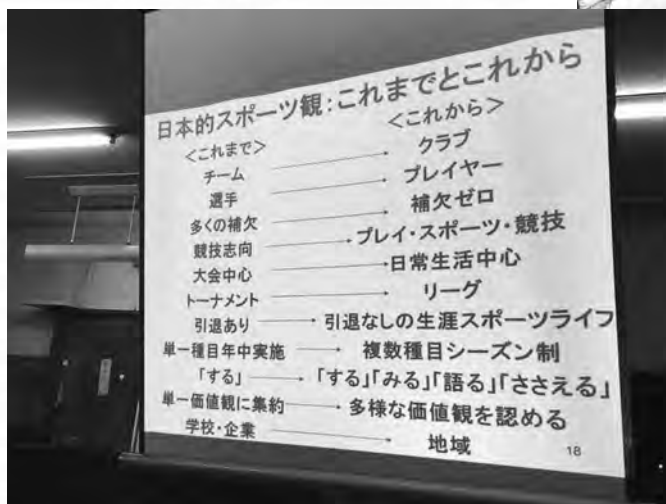 日本的スポーツ観：これまでとこれから
＜これまで＞ ＜これから＞
チーム → クラブ
選手 → プレイヤー
多くの補欠 → 補欠ゼロ
競技志向 → プレイ・スポーツ・競技
大会中心 → 日常生活中心
トーナメント → リーグ
引退あり → 引退なしの生涯スポーツライフ
単一種目年中実施 → 複数種目シーズン制
「する」 → 「する」「みる」「語る」「ささえる」
単一価値観に集約 → 多様な価値観を認める
学校・企業 → 地域
18